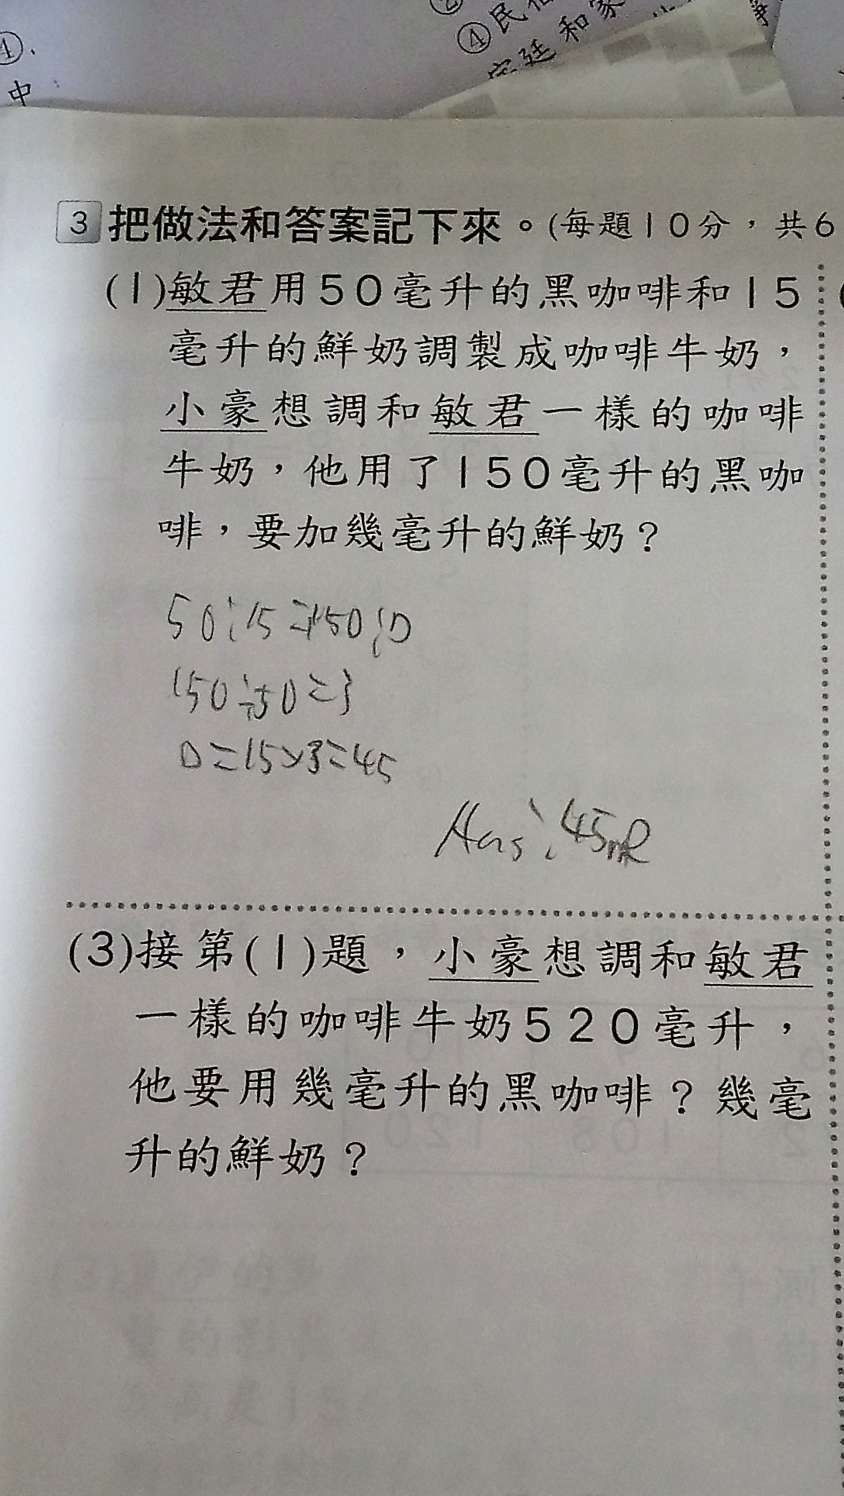 ④民
宮廷和家
中
3 把做法和答案記下來。(每題10分,共6
(1)敏君用50毫升的黑咖啡和15
毫升的鮮奶調製成咖啡牛奶,
小豪想調和敏君一樣的咖啡
牛奶,他用了150毫升的黑咖
啡,要加幾毫升的鮮奶?
50:15=150:□
150÷50=3
□=15×3=45
Ans:45mℓ
(3)接第(1)題,小豪想調和敏君
一樣的咖啡牛奶520毫升,
他要用幾毫升的黑咖啡?幾毫
升的鮮奶?